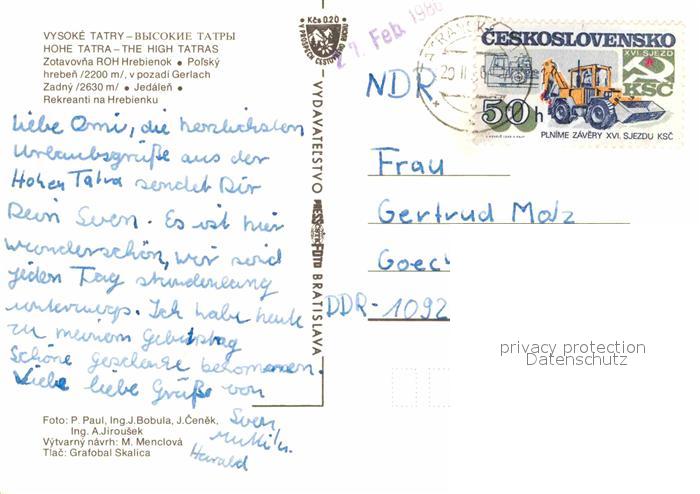 VYSOKÉ TATRY – ВЫСОКИЕ ТАТРЫ
HOHE TATRA – THE HIGH TATRAS
Zotavovňa ROH Hrebienok ● Poľský
hrebeň /2200 m/, v pozadí Gerlach
Zadný /2630 m/ ● Jedáleň ●
Rekreanti na Hrebienku
Liebe Omi, die herzlichsten
Urlaubsgrüße aus der
Hohen Tatra sendet Dir
Dein Sven. Es ist hier
wunderschön, wir sind
jeden Tag stundenlang
unterwegs. Ich habe heute
zu meinem Geburtstag
schöne Geschenke bekommen.
Viele liebe Grüße von
Sven
Harald
Foto: P. Paul, Ing.J.Bobula, J.Čeněk,
Ing. A.Jiroušek
Výtvarný návrh: M. Menclová
Tlač: Grafobal Skalica
Kčs 0.20
VYDAVATEĽSTVO
PRESSFOTO
BRATISLAVA
27. Feb. 1986
ČESKOSLOVENSKO
XVI. SJEZD
KSČ
50 h
PLNÍME ZÁVĚRY XVI. SJEZDU KSČ
NDR
Frau
Gertrud Molz
DDR-1092
privacy protection
Datenschutz